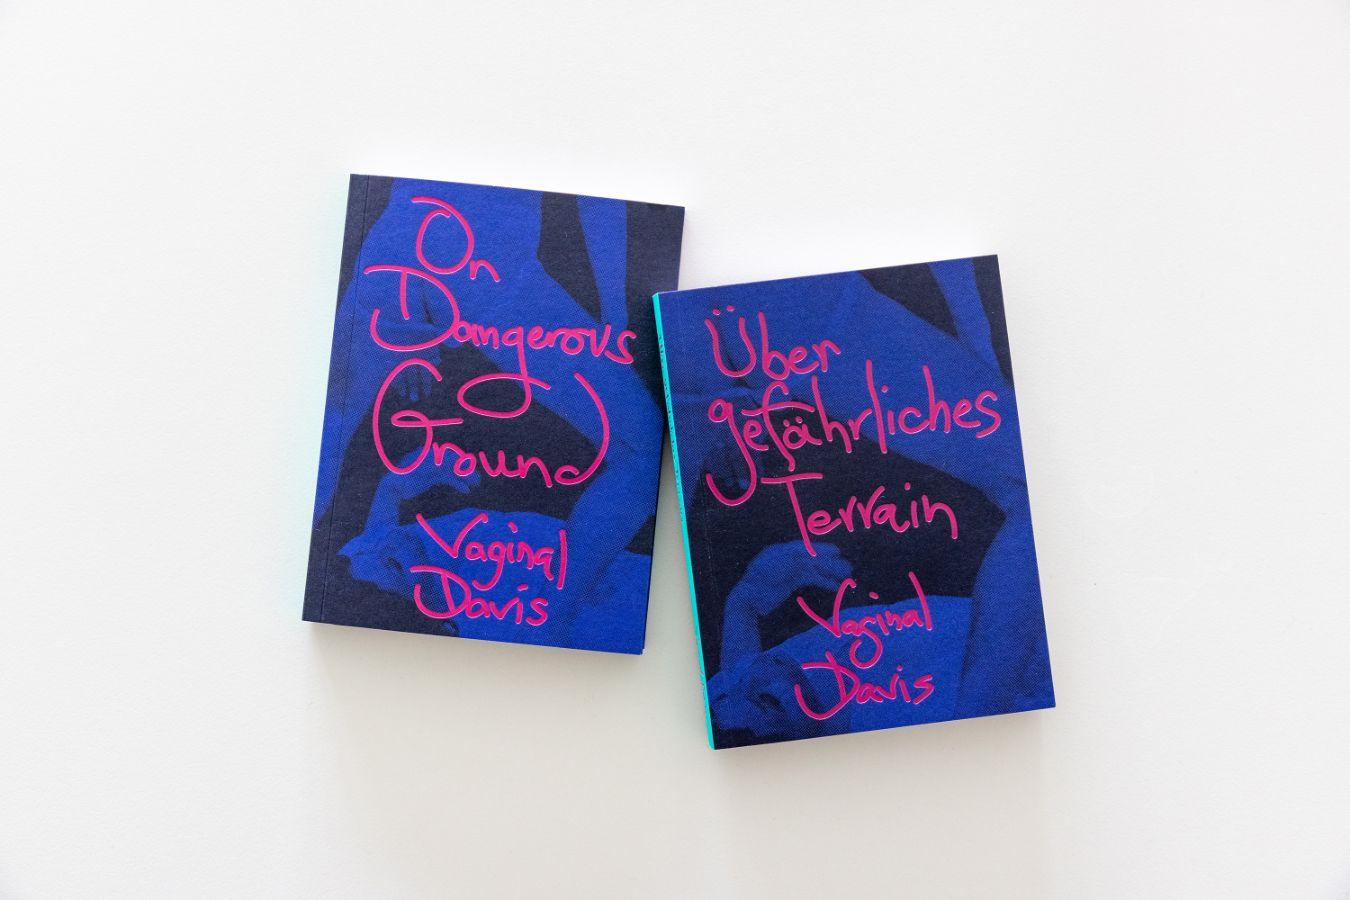 On
Dangerous
Ground
Vaginal
Davis
Über
gefährliches
Terrain
Vaginal
Davis